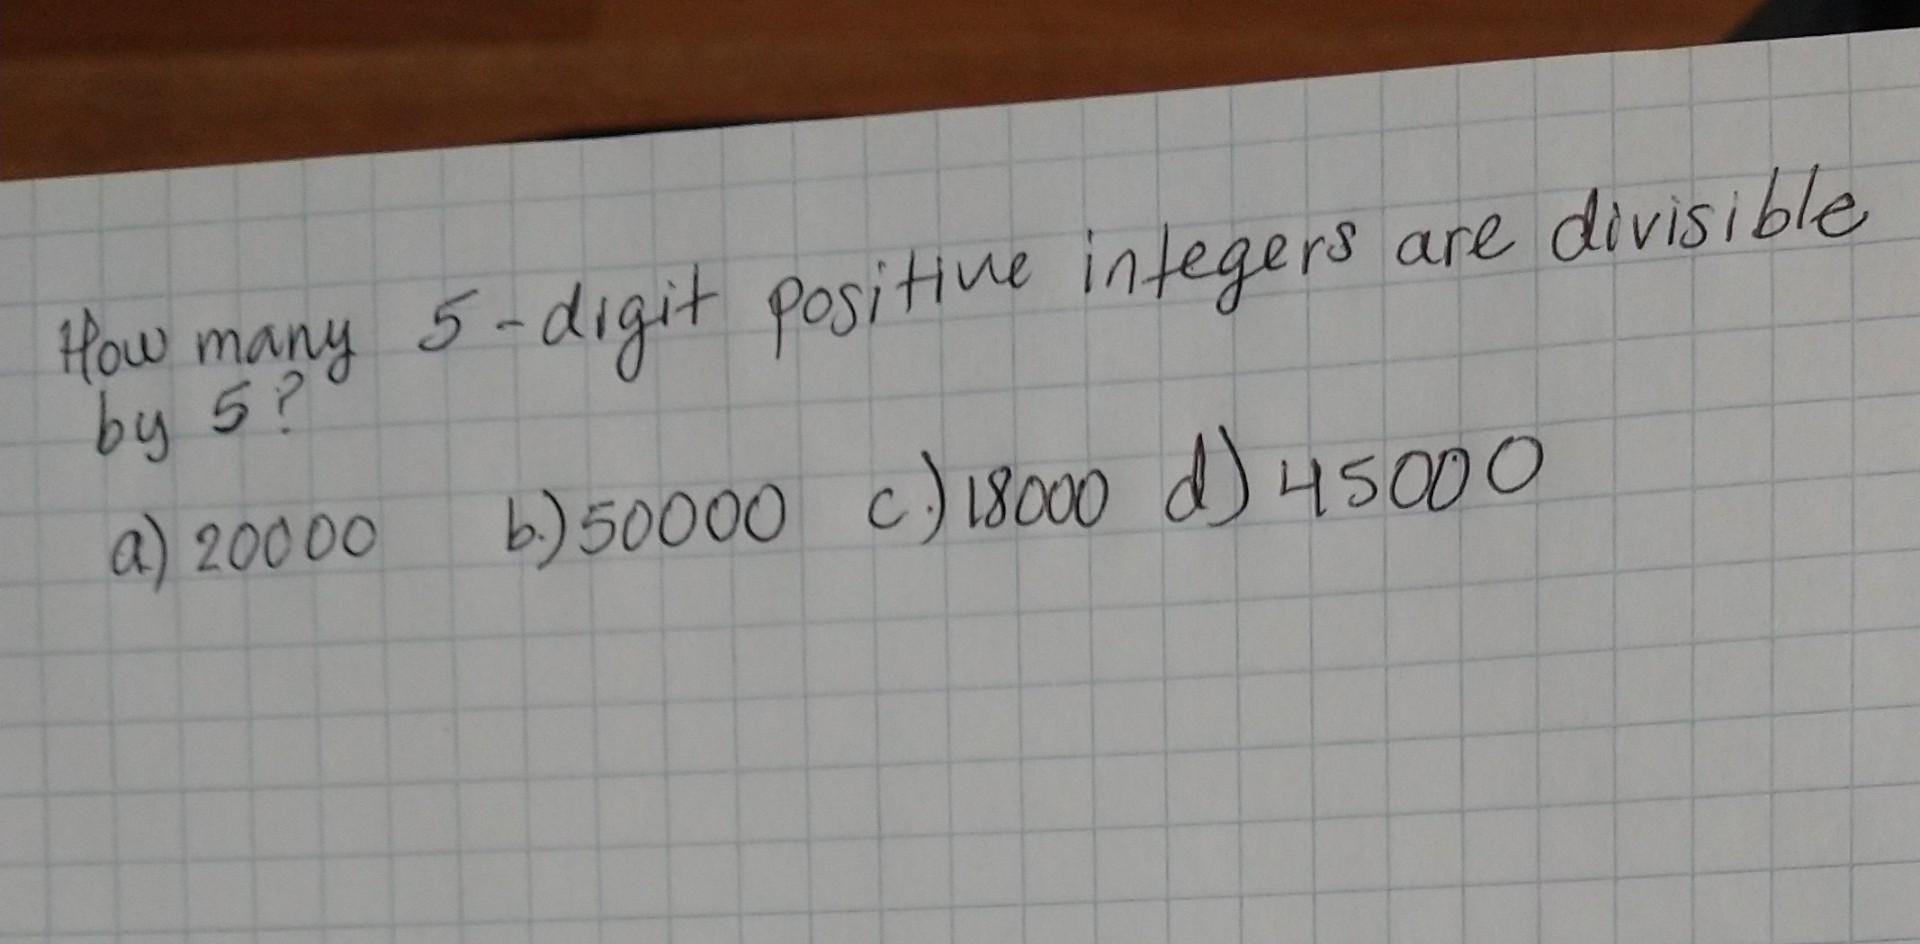 How many 5-digit positive integers are divisible
by 5?
a) 20000 b.) 50000 c.) 18000 d) 45000